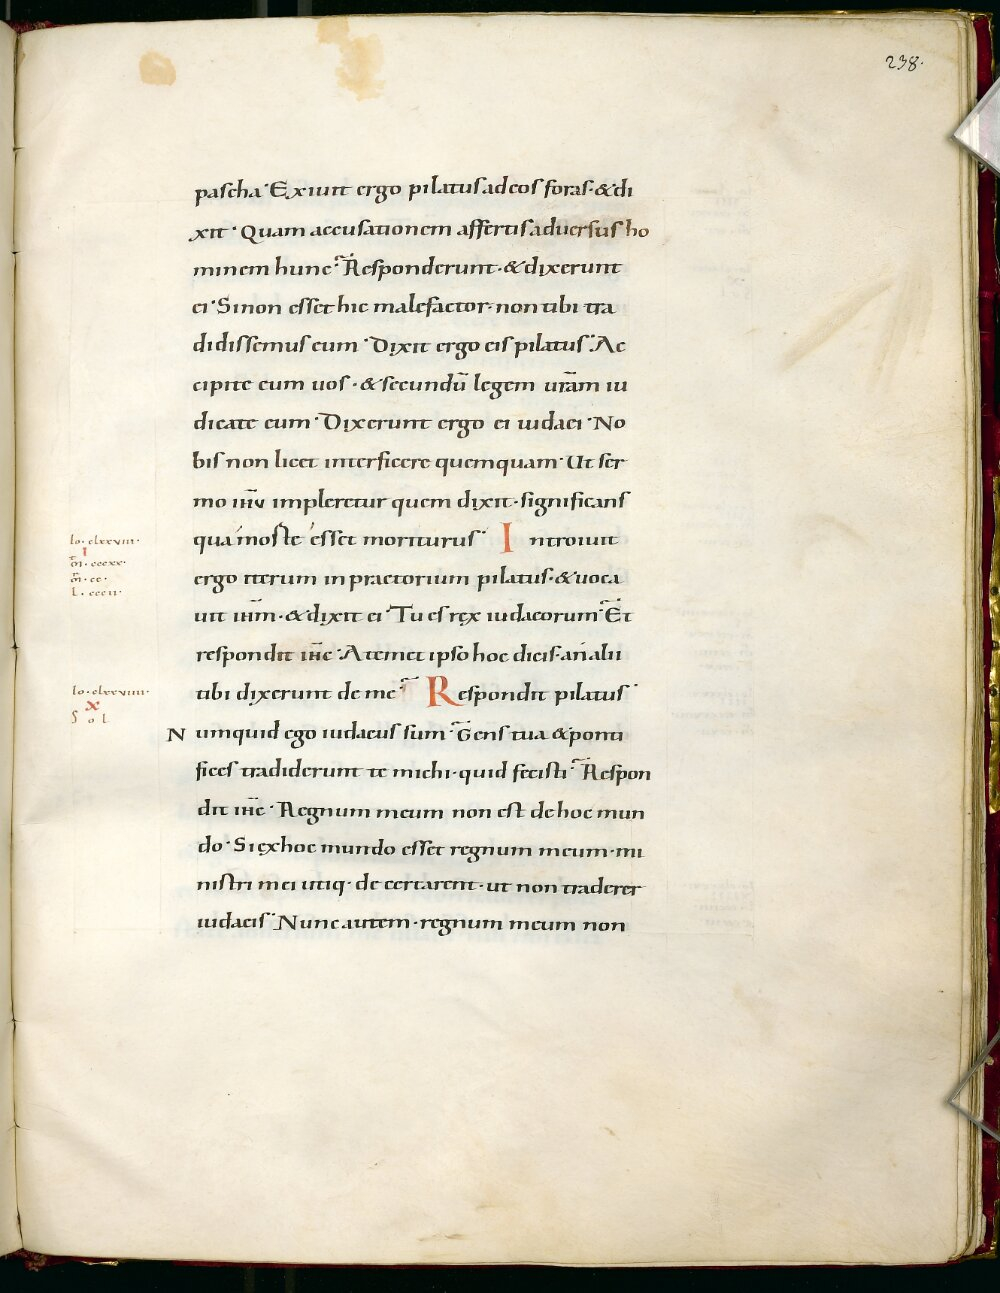 238.
pascha· Exiuit ergo pilatus ad eos foras·&di
xit· Quam accusationem affertis aduersus ho
minem hunc? Responderunt·&dixerunt
ei· Si non esset hic malefactor· non tibi tra
didissemus eum· Dixit ergo eis pilatus· Ac
cipite eum uos·&secundū legem urām iu
dicate eum· Dixerunt ergo ei iudaei· No
bis non licet interficere quemquam· Ut ser
mo ihu impleretur quem dixit· significans
qua moste esset moriturus· Introiuit
ergo iterum in praetorium pilatus·&uoca
uit ihm·&dixit ei· Tu es rex iudaeorum? Et
respondit ihc· A temet ipso hoc dicis· an alii
tibi dixerunt de me? Respondit pilatus·
Numquid ego iudaeus sum? Gens tua &ponti
fices tradiderunt te michi· quid fecisti? Respon
dit ihc· Regnum meum non est de hoc mun
do· Si ex hoc mundo esset regnum meum· mi
nistri mei utiq· decertarent· ut non traderer
iudaeis· Nunc autem· regnum meum non
Io· clxxviii·
I
m̄· cccxx·
m̄· cc·
L· cccii·
Io· clxxviiii·
X
Sol